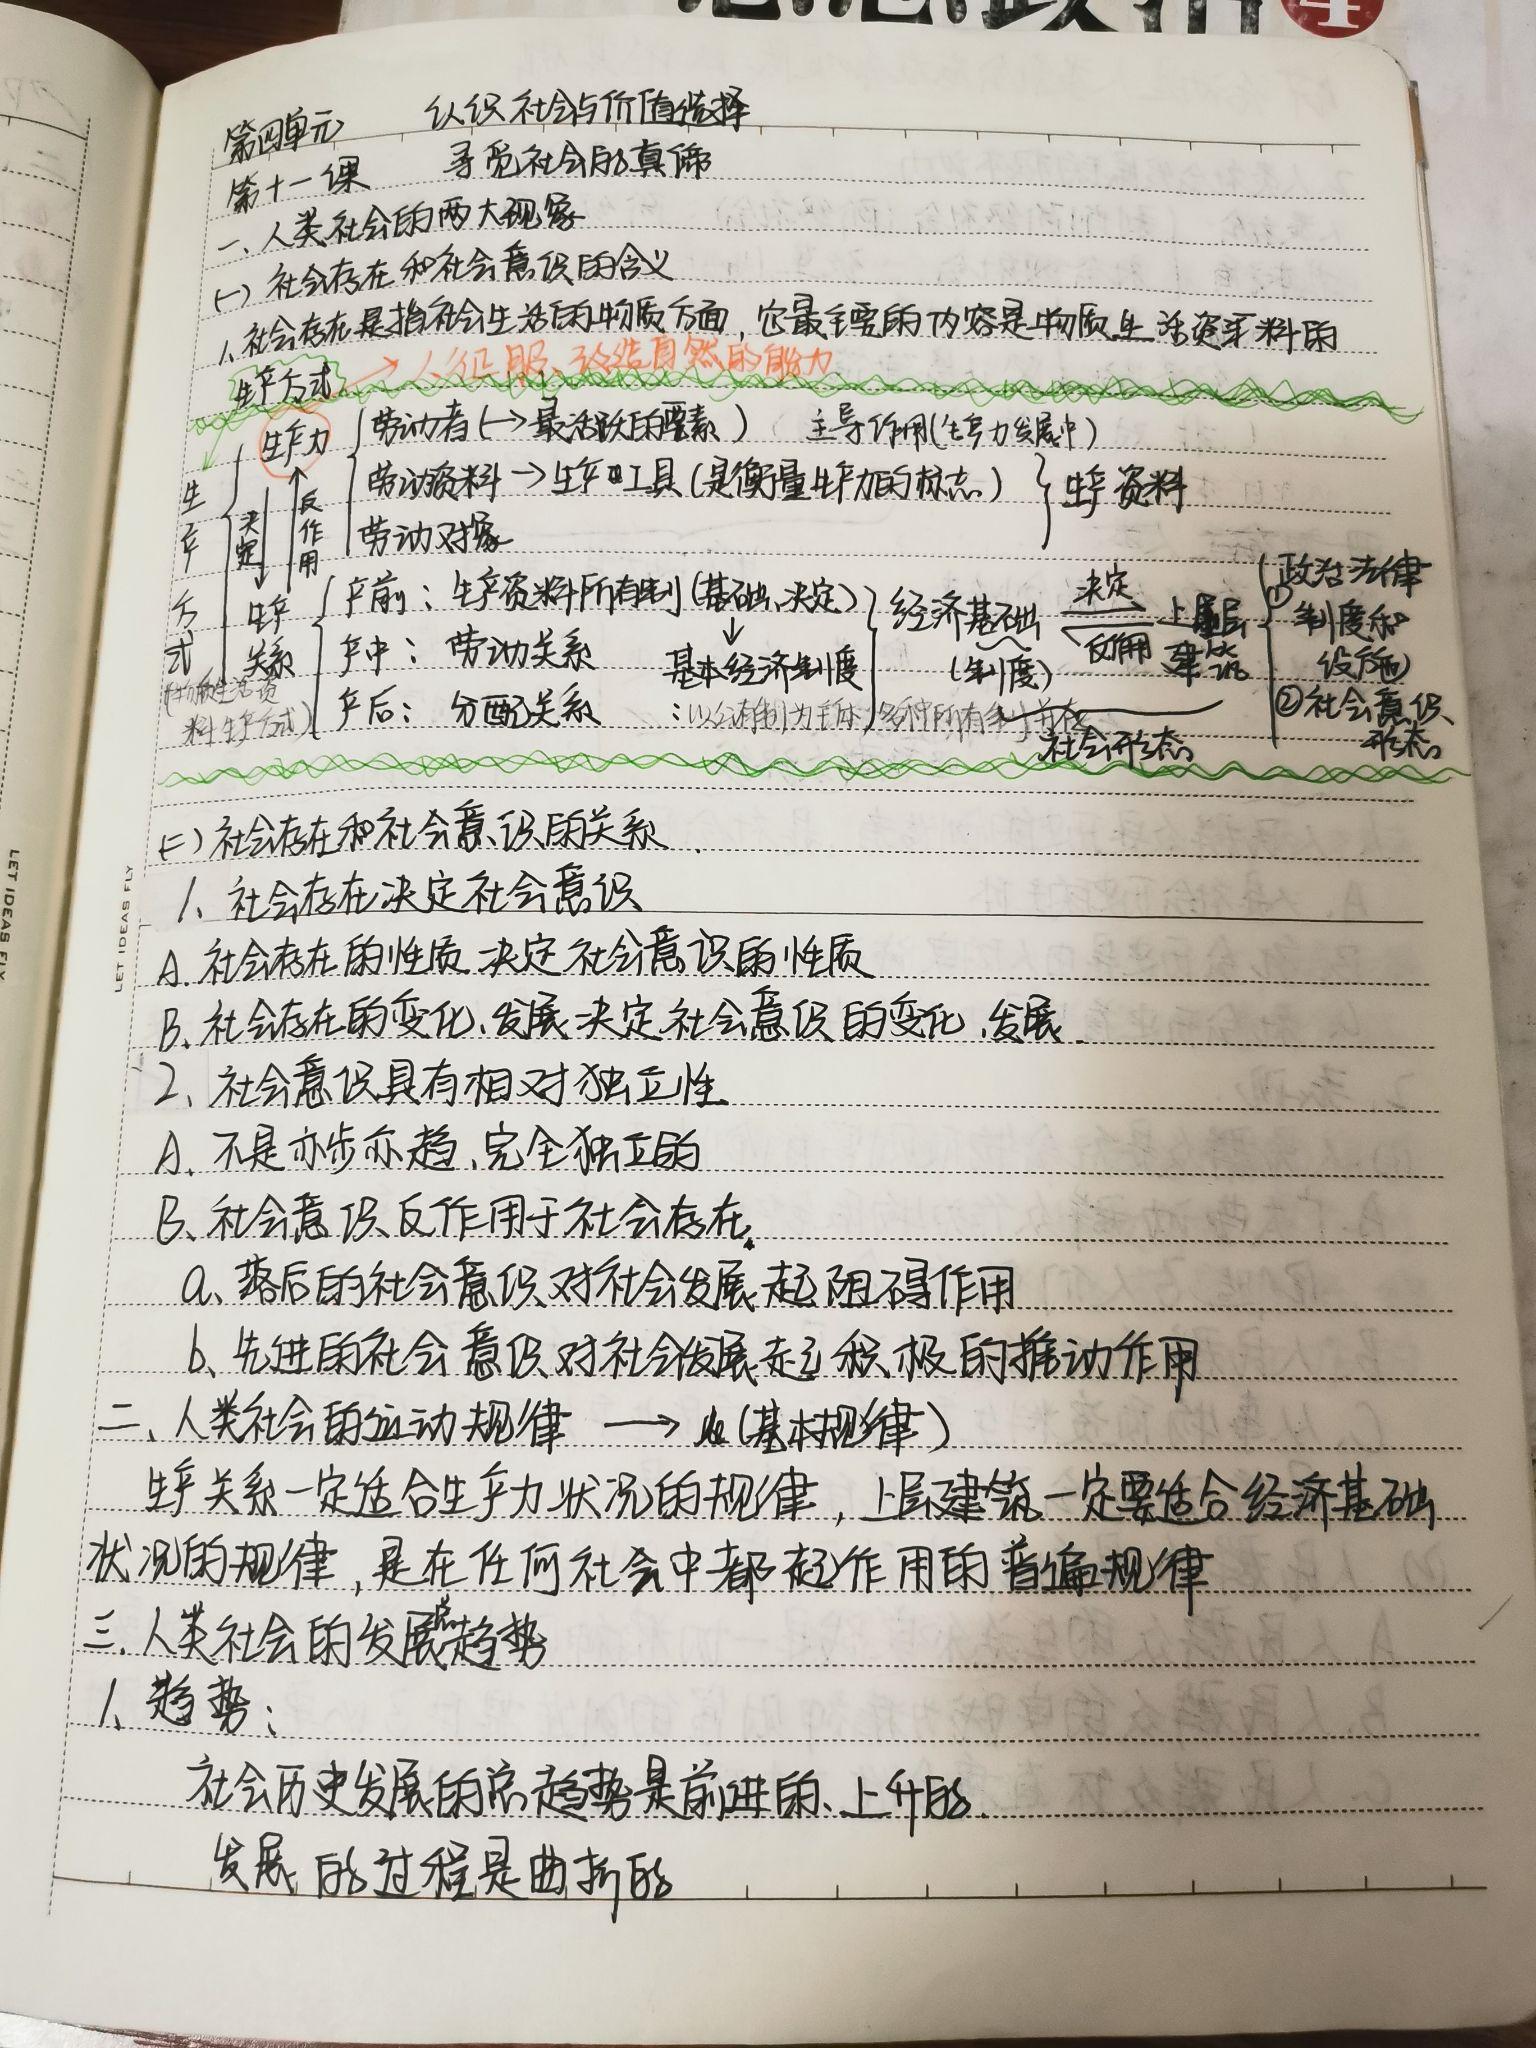 第四单元 认识社会与价值选择
第十一课 寻觅社会的真谛
一、人类社会的两大现象
(一)社会存在和社会意识的含义
1、社会存在是指社会生活的物质方面，它最主要的内容是物质生活资料的
生产方式 → 人征服、改造自然的能力
生产方式
(物质生活资料生产方式)
生产力
决定
反作用
劳动者(→最活跃的要素) 主导作用(生产力发展中)
劳动资料→生产工具(是衡量生产力的标志)
生产资料
劳动对象
生产关系
产前：生产资料所有制(基础、决定)
↓
产中：劳动关系 基本经济制度
产后：分配关系 ：以公有制为主体，多种所有制并存
经济基础
(制度)
决定
反作用
上层建筑
社会形态
①政治法律制度和设施
②社会意识形态
(二)社会存在和社会意识的关系
1、社会存在决定社会意识
A.社会存在的性质决定社会意识的性质
B、社会存在的变化、发展决定社会意识的变化、发展.
2、社会意识具有相对独立性
A.不是亦步亦趋、完全独立的
B、社会意识反作用于社会存在.
a、落后的社会意识对社会发展起阻碍作用
b、先进的社会意识对社会发展起积极的推动作用
二、人类社会的运动规律 → (基本规律)
生产关系一定适合生产力状况的规律，上层建筑一定要适合经济基础
状况的规律，是在任何社会中都起作用的普遍规律
三.人类社会的发展总趋势
1、趋势：
社会历史发展的总趋势是前进的、上升的.
发展的过程是曲折的
LET IDEAS FLY
LET IDEAS FLY